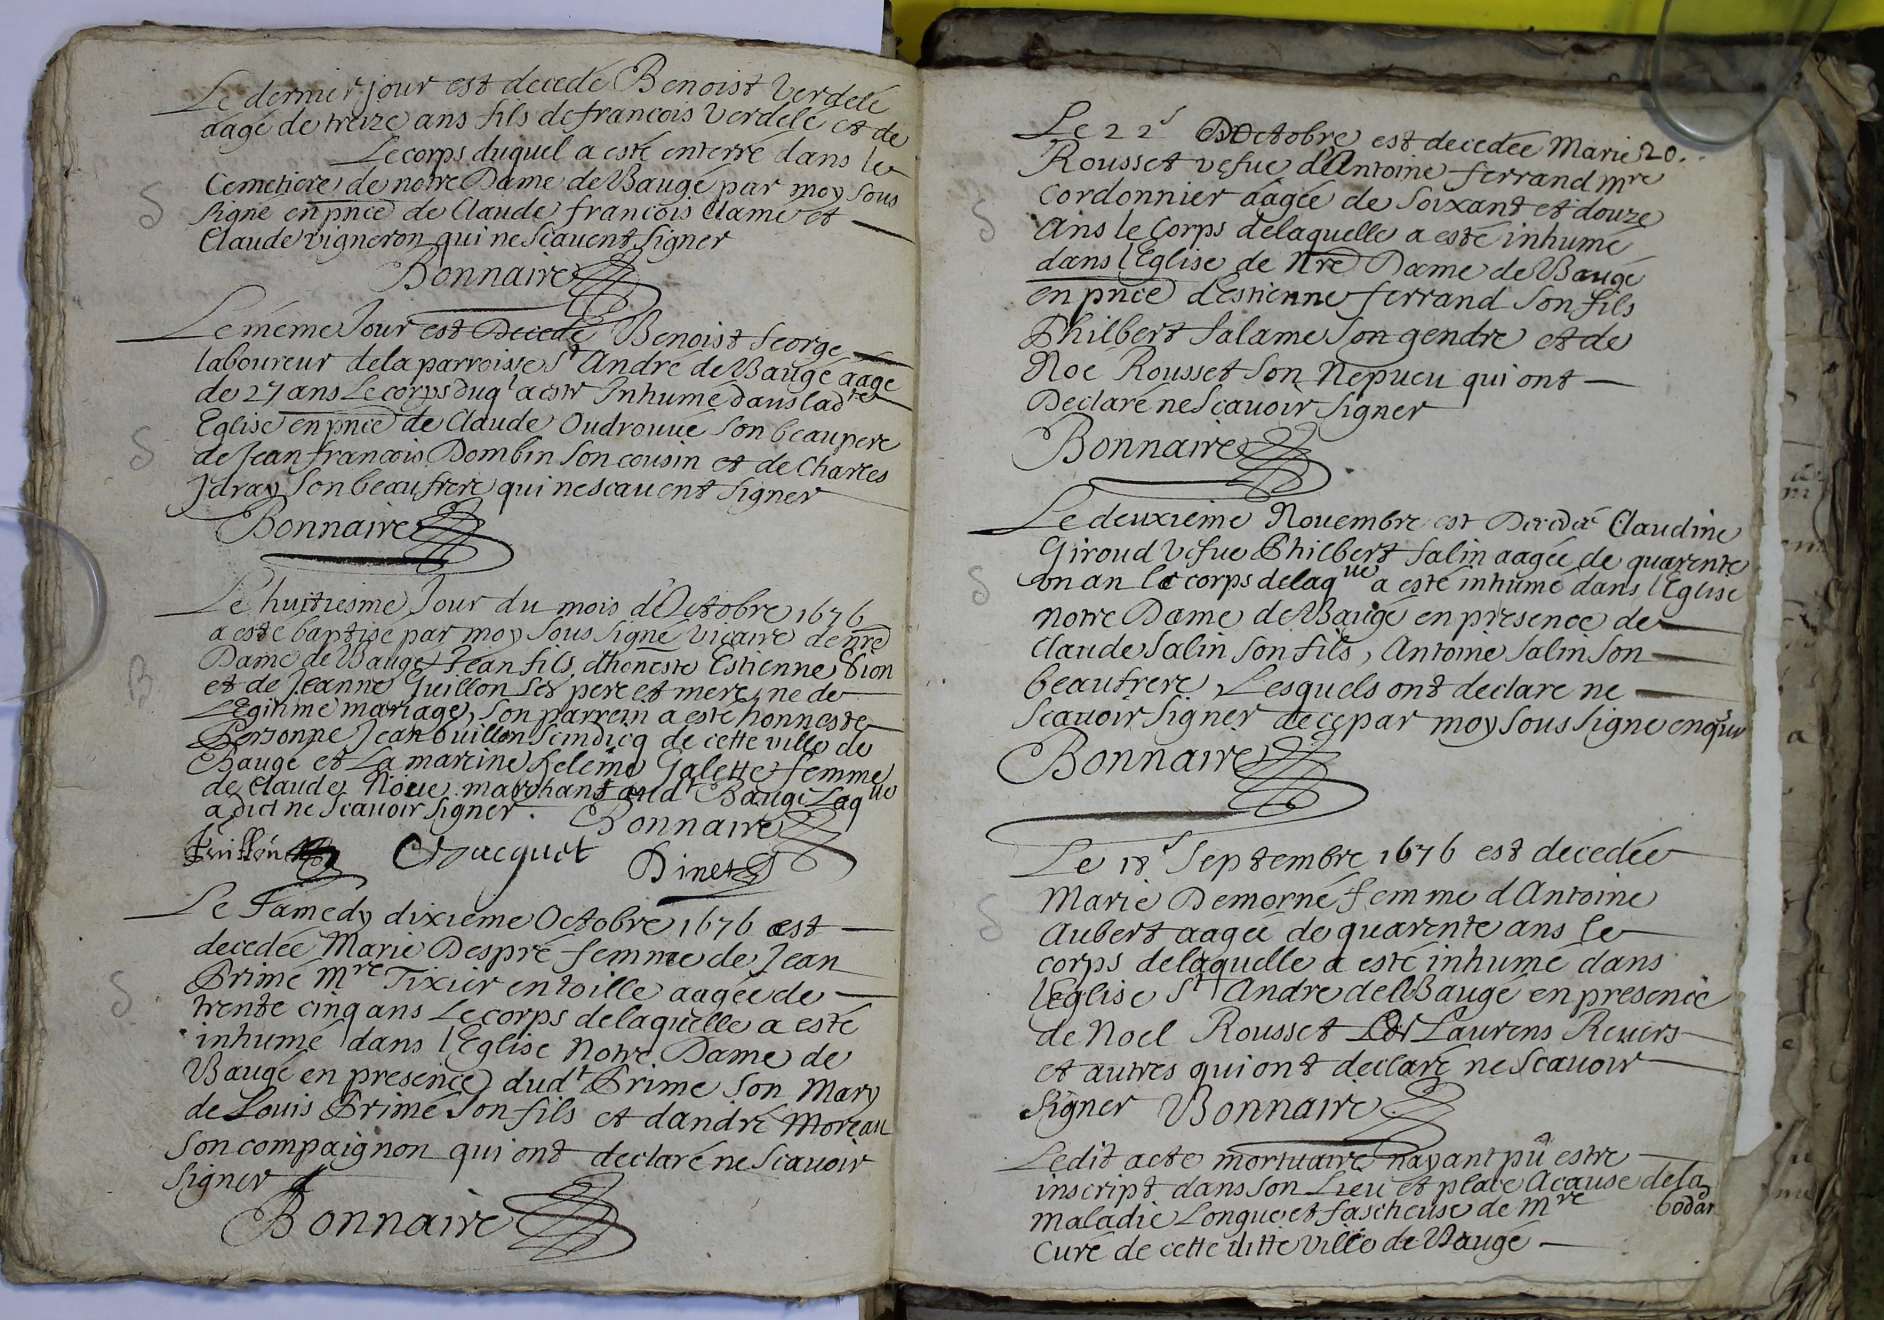 Le dernier jour est decedé Benoist Verdelé
aagé de treize ans fils de francois Verdelé et de
Le corps duquel a esté enterré dans le
Cemetiere de notre Dame de Baugé par moy sous
signé en pnce de Claude francois Clame et
Claude vigneron qui ne scauent signer
S
Bonnaire
Le méme Jour est Decedé Benoist George
laboureur de la parroisse St André de Baugé aagé
de 27 ans Le corps duql a esté Inhumé dans ladte
Eglise en pnce de Claude Oudrouué son beaupere
de Jean francois Dombin son cousin et de Charles
Jdray son beaufrere qui ne scauent signer
S
Bonnaire
Le huitiesme Jour du mois d'Octobre 1676
a esté baptisé par moy sous signé vicaire de nre
Dame de Baugé Jean fils d'honeste Estienne Dion
et de Jeanne Guillon ses pere et mere, né de
Legitime mariage, son parrein a esté honneste
Personne Jean Guillon scindicq de cette ville de
Baugé et La mareine heleine Galette femme
de Claude Noëe marchant audt Baugé Laqlle
a dict ne scauoir signer.
B
Bonnaire
Guillon
Jacquet
Dinet
Le Samedy dixieme Octobre 1676 est
decedée Marie Despré femme de Jean
Primé mre Tixier en toille aagée de
trente cinq ans Le corps de laquelle a esté
inhumé dans l'Eglise Notre Dame de
Baugé en presence dudt Primé son Mary
de Louis Primé son fils et d'andré Moreau
son compaignon qui ont declaré ne scauoir
signer
S
Bonnaire
20.
Le 22e D'Octobre est decedée Marie
Rousset vefue d'Antoine ferrand mre
Cordonnier aagée de soixant et douze
Ans le Corps de laquelle a esté inhumé
dans l'Eglise de Nre Dame de Baugé
en pnce d'Estienne ferrand son fils
Philbert Salame son gendre et de
Noé Rousset son Nepueu qui ont
Declaré ne scauoir signer
S
Bonnaire
Le deuxieme Nouembre est Decedée Claudine
Giroud vefue Philbert Salin aagée de quarente
un an le corps de laqlle a esté inhumé dans l'Eglise
notre Dame de Baugé en presence de
Claude Salin son fils, Antoine Salin son
beaufrere, Lesquels ont declaré ne
scauoir signer de ce par moy sous signé enquis
S
Bonnaire
Le 18e Septembre 1676 est decedée
Marie Demorné femme d'Antoine
Aubert aagée de quarente ans le
corps de laquelle a esté inhumé dans
l'Eglise St André de Baugé en presence
de Noel Rousset Laurens Reuers
et autres qui ont declaré ne scauoir
signer Bonnaire
S
Ledit acte mortuaire n'ayant pû estre
inscript dans son Lieu et place A cause de la
maladie Longue et fascheuse de mre
Curé de cette ditte ville de Baugé